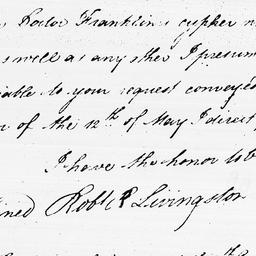 Doctor Franklin's cypher
as well as any other I presum
iable to your request conveyed
r of the 12th of May I direct
I have the honor to b
ned Robt R Livingston